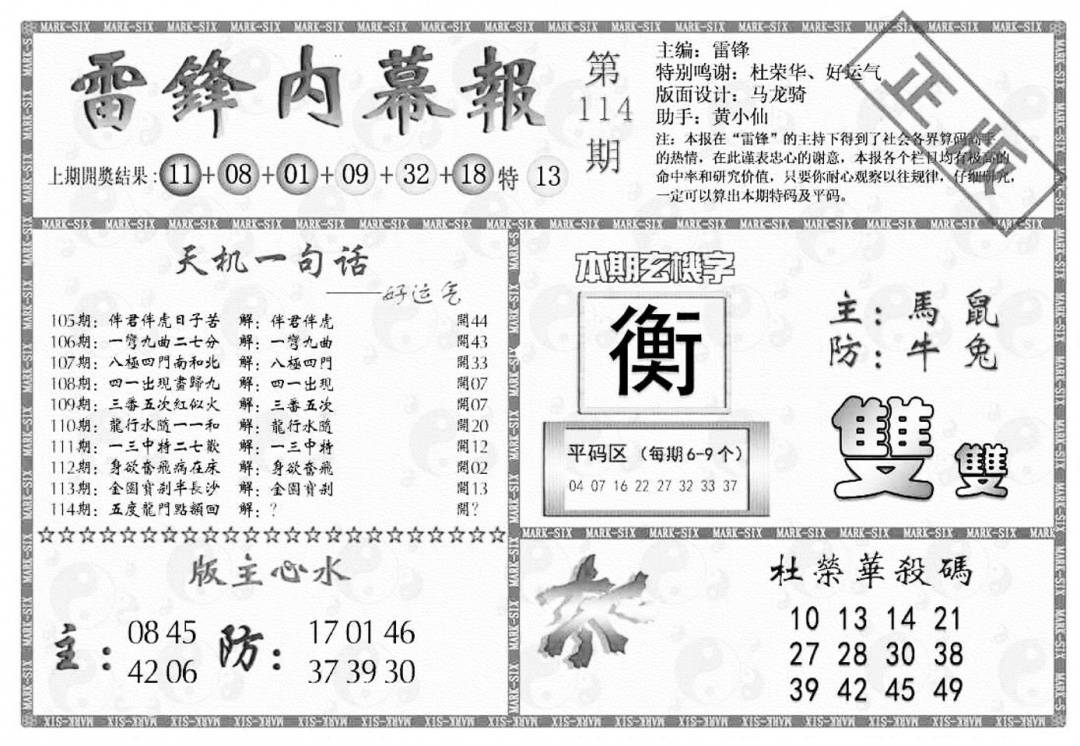 雷鋒内幕報
第
114
期
主编：雷锋
特别鸣谢：杜荣华、好运气
版面设计：马龙骑
助手：黄小仙
注：本报在“雷锋”的主持下得到了社会各界算码高手
的热情，在此谨表忠心的谢意，本报各个栏目均有极高的
命中率和研究价值，只要你耐心观察以往规律，仔细研究，
一定可以算出本期特码及平码。
正版
上期開獎結果：11+08+01+09+32+18特13
天机一句话
——好运气
105期：伴君伴虎日子苦 解：伴君伴虎 開44
106期：一彎九曲二七分 解：一彎九曲 開43
107期：八極四門南和北 解：八極四門 開33
108期：四一出現盡歸九 解：四一出現 開07
109期：三番五次紅似火 解：三番五次 開07
110期：龍行水隨一一和 解：龍行水隨 開20
111期：一三中特二七歡 解：一三中特 開12
112期：身欲奮飛病在床 解：身欲奮飛 開02
113期：金園寶刹半長沙 解：金園寶刹 開13
114期：五度龍門點額回 解：？ 開？
☆☆☆☆☆☆☆☆☆☆☆☆☆☆☆☆☆☆☆☆☆☆☆
版主心水
主： 08 45 防： 17 01 46
42 06 37 39 30
本期玄機字
衡
平码区（每期6-9个）
04 07 16 22 27 32 33 37
主：馬 鼠
防：牛 兔
雙雙
杀
杜榮華殺碼
10 13 14 21
27 28 30 38
39 42 45 49
MARK-SIX